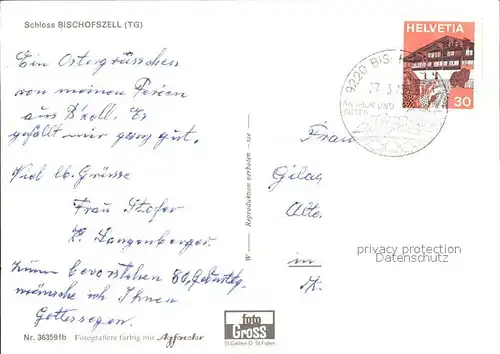 Schloss BISCHOFSZELL (TG)
Ein Ostergrüsschen
von meinen Ferien
aus B'zell. Es
gefällt mir ganz gut.
Viel lb. Grüsse
Frau
K. Langenberger
Zum bevorstehen 80. Geburtstag
wünsche ich Ihnen
Gottessegen.
Nr. 36359fb Fotografiere farbig mit Agfacolor
W — Reproduktion verboten — sue
foto
Gross
St.Gallen O St.Fiden
HELVETIA
30
9220 BIS
27. 3
AN THUR UND
SITTER
Frau
in
privacy protection
Datenschutz